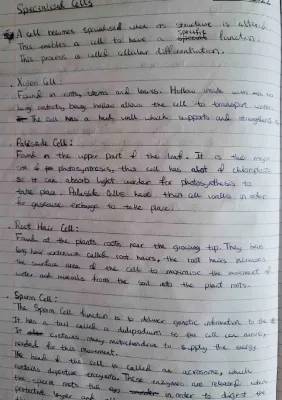 Specialised Cells
A cell becomes specialised when its structure is altered.
This enables a cell to have a specific function.
This process is called cellular differentiation.
Xylem Cell:
Found in roots, stems and leaves. Hollow inside with
being hollow allows the cell to transport water.
The cell has a thick wall which supports and strengthens
Palisade Cell:
Found in the upper part of the leaf. It is the major
site of photosynthesis, this cell has alot of chloroplasts
so it can absorb light for photosynthesis to
take place. Palisade Cells have thin cell walls in order
for gaseous exchange to take place.
Root Hair Cell:
Found at the plants roots near the growing tip. They have
long hair extensions called root hairs, the root hairs increases
the surface area of the cell to maximise the movement of
water and minerals from the soil into the plant roots.
Sperm Cell:
The Sperm Cell function is to deliver genetic information to the
It has a tail called a so the cell can swim,
It contains many mitochondria to supply the energy
needed for this movement.
The head of the cell is called an acrosome, which
contains digestive enzymes. These enzymes are released when
the sperm meets the egg in order to digest the
protective layer and